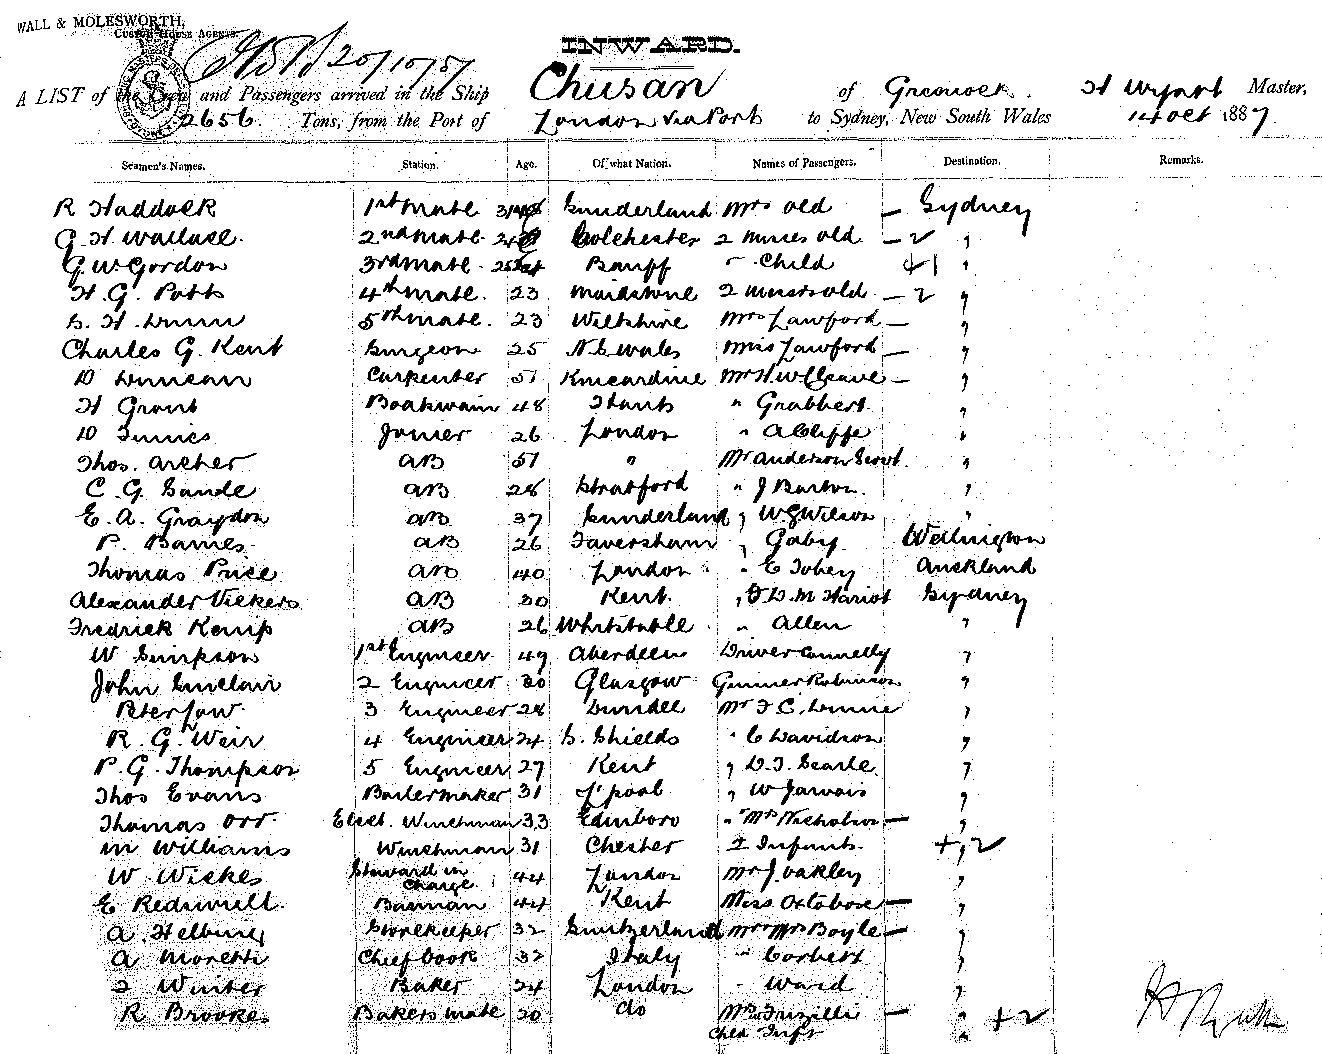 WALL & MOLESWORTH,
CUSTOM HOUSE AGENTS.
20/10/87
INWARD.
A LIST of the Crew and Passengers arrived in the Ship Chusan of Greenock. H Wyatt Master,
2656 Tons, from the Port of London via Port to Sydney, New South Wales 14 Oct 1887
Seamen's Names. Station. Age. Of what Nation. Names of Passengers. Destination. Remarks.
R Haddock 1st Mate Sunderland Mrs Old — Sydney
G. H. Wallace. 2nd Mate Colchester 2 Misses Old. — 2 "
G. W Gordon 3rd Mate Banff " Child +1 "
H. G. Potts 4th Mate. 23 Maidstone 2 Messrs Old — 2 "
5th Mate. 23 Wiltshire Mrs Lawford — "
Charles G. Kent Surgeon 25 N. S. Wales Miss Lawford — "
D Duncan Carpenter 51 Kincardine Mr H. W. Cleave — "
H Grant Boatswain 48 Hants " Grabbert. "
D Innies Joiner 26 London " A Cliffe "
Thos. Archer AB 51 " Mr Anderson Scout. "
C. G. Sande AB 28 Stratford " J Barton. "
E. A. Graydon AB 37 Sunderland " W G Wilson "
P. Barnes AB 26 Faversham " Gaby. Wellington
Thomas Price AB 40 London " E Tobey Auckland
Alexander Vickers AB 30 Kent. " Hariot Sydney
Fredrick Kemp AB 26 Whitstable " Allen "
W Simpson 1st Engineer 49 Aberdeen Driver Connelly "
John Sinclair 2 Engineer 30 Glasgow Gunner Robinson "
Peter Low 3 Engineer 28 Dundee Mr F C. "
R. G. Weir 4 Engineer 24 S. Shields " C Davidson "
P. G. Thompson 5 Engineer 27 Kent " D. J. Searle. "
Thos Evans Boilermaker 31 L'pool " W Jarvois "
Thomas Orr. Elect. Winchman 33 Edinboro " Mrs Nicholson — "
M Williams Winchman 31 Chester 2 Infants. + 2 "
W. Wickes Steward in Charge. 44 London Mr J. Oakley "
E Redsuell Barman 44 Kent Miss — "
A. Helbing Storekeeper 32 Switzerland Mr & Mrs Boyle — "
A Moretti Chief Cook 32 Italy " Corbett "
Winter Baker 24 London " Ward "
R Brookes Bakers Mate 20 do Mrs — " +2